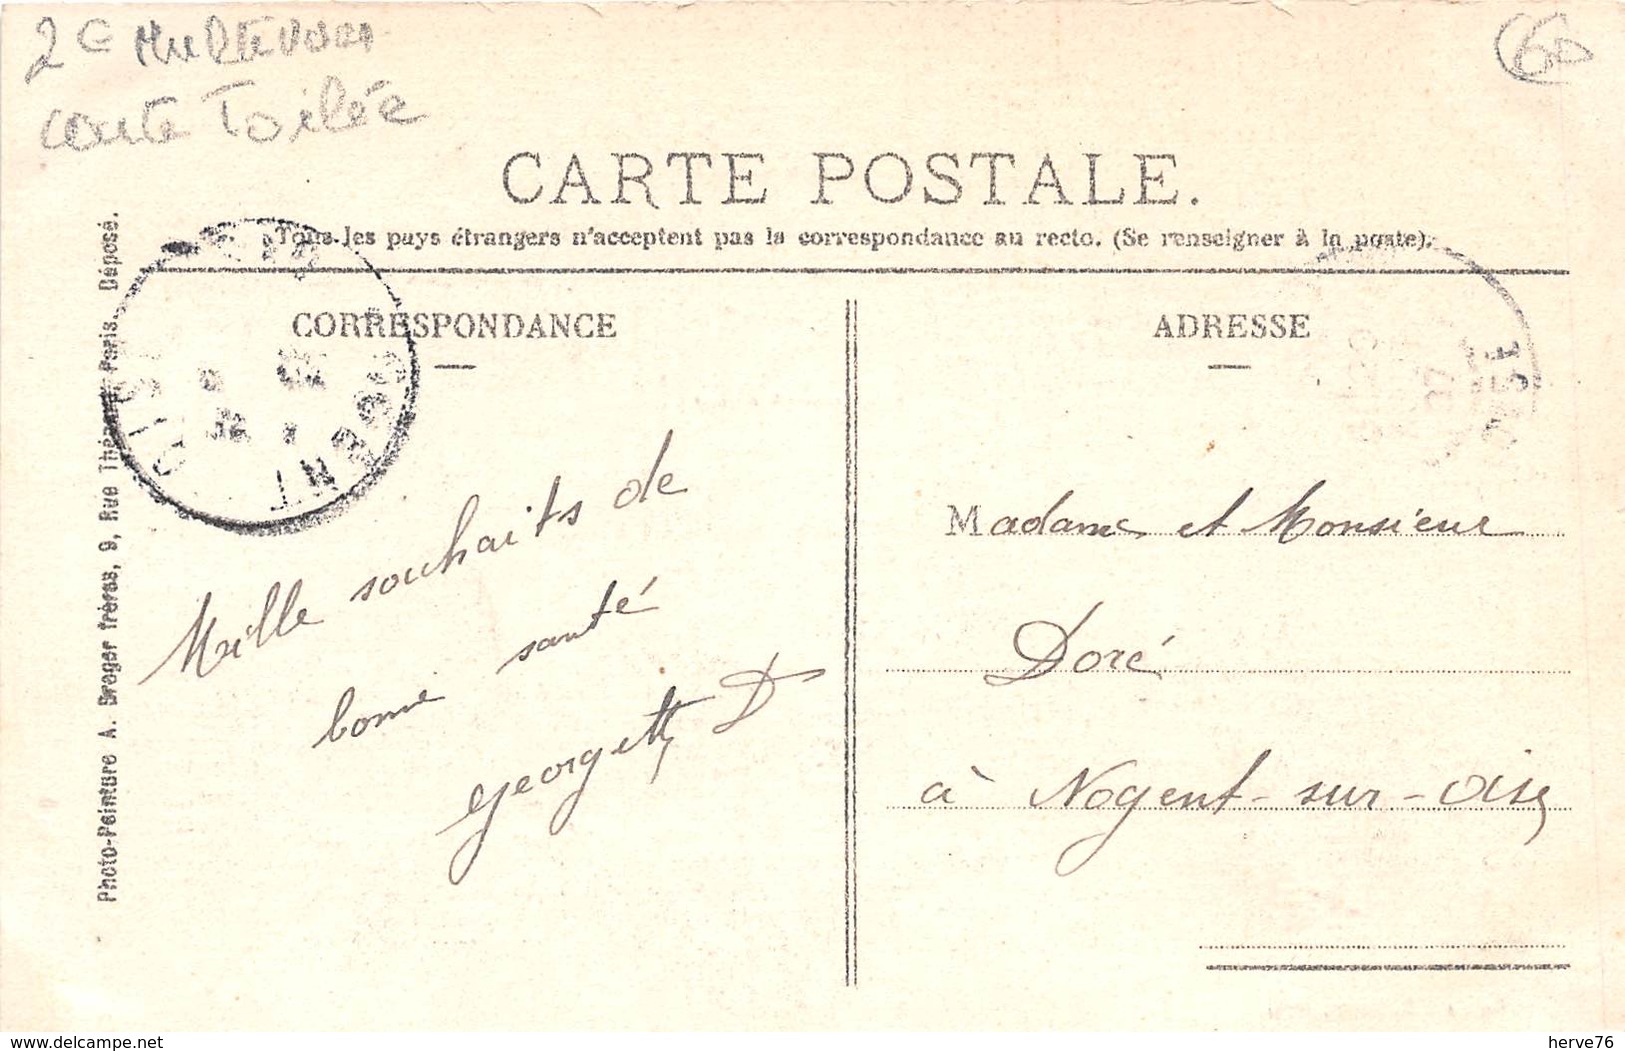 carte Toilée
60
CARTE POSTALE.
Tous les pays étrangers n'acceptent pas la correspondance au recto. (Se renseigner à la poste).
CORRESPONDANCE
ADRESSE
Photo-Peinture A. Breger frères, 9, Rue Thénard, Paris. Déposé.
NOGENT
OISE
Mille souhaits de
bonne santé
Georgette D
Madame et Monsieur
Doré
à Nogent-sur-Oise
delcampe.net
herve76